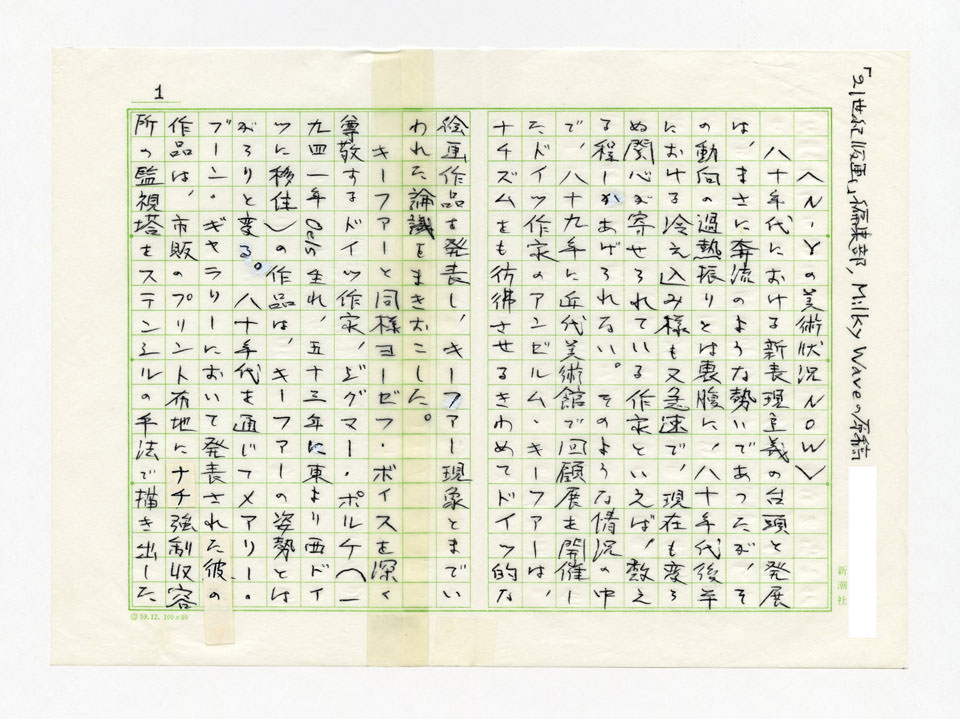 「21世紀版画」編集部, Milky Waveの原稿
〈N・Yの美術状況NOW〉
八十年代における新表現主義の台頭と発展
は、まさに奔流のような勢いであったが、そ
の動向の過熱振りとは裏腹に、八十年代後半
における冷え込み様も又急速で、現在も変ら
ぬ関心が寄せられている作家といえば、数え
る程しかあげられない。そのような情況の中
で、八十九年に近代美術館で回顧展を開催し
た、ドイツ作家のアンゼルム・キーファーは、
ナチズムをも彷彿させるきわめてドイツ的な
絵画作品を発表し、キーファー現象とまでい
われた論議をまきおこした。
キーファーと同様ヨーゼフ・ボイスを深く
尊敬するドイツ作家、ジグマー・ポルケ（一
九四一年 生れ、五十三年に東より西ドイ
ツに移住）の作品は、キーファーの姿勢とは
がらりと変る。八十年代を通じてメアリー・
ブーン・ギャラリーにおいて発表された彼の
作品は、市販のプリント布地にナチ強制収容
所の監視塔をステンシルの手法で描き出した
1
新潮社
59.12. 100×80